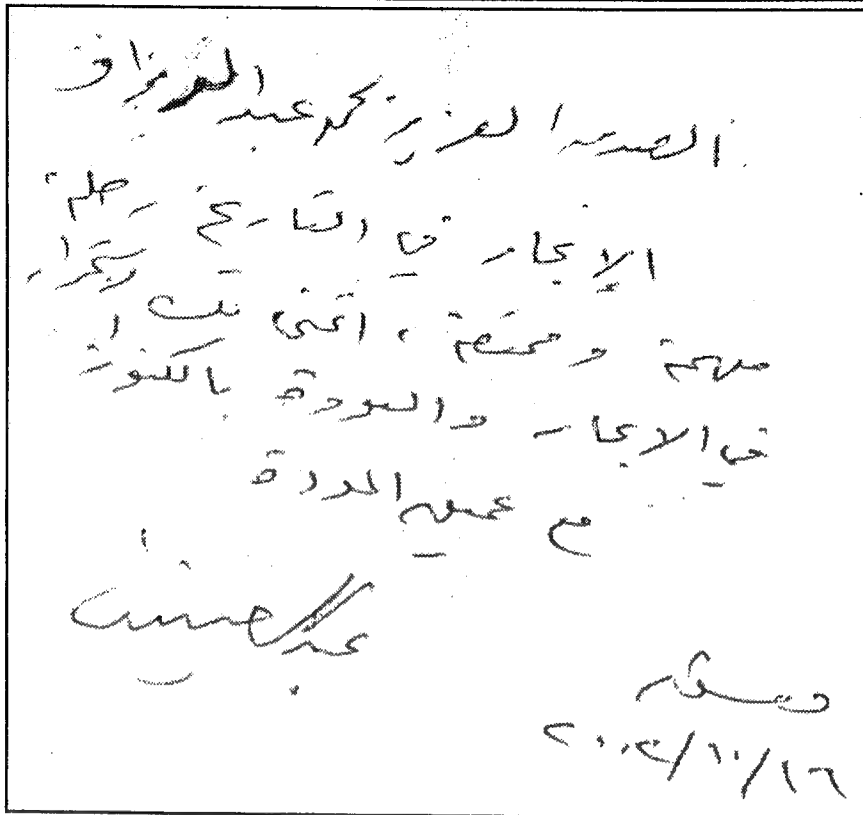 الصديق العزيز محمد عبد الرزاق
الإبحار في التاريخ رحلة
مهمة وممتعة ، اتمنى لك استمرار
في الابحار والعودة بالكنوز
مع عميق المودة
عبد الحسين
دمشق
٢٠٠٢/١٠/١٦